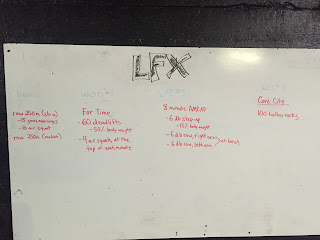 LFX
row 250m (slow)
-15 good mornings
-10 air squat
row 250m (medium)
For Time
-60 deadlifts
-50% body weight
-4 air squats at the
top of each minute
8 minute AMRAP
-6 db step up
-15% body weight
-6 db row, right arm
-6 db row, left arm
on bench
Core City
100 hollow rocks